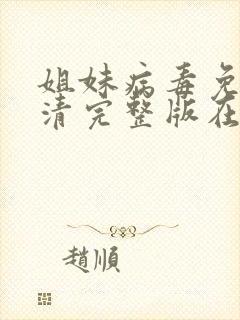 姐妹病毒免
清完整版在
趙順